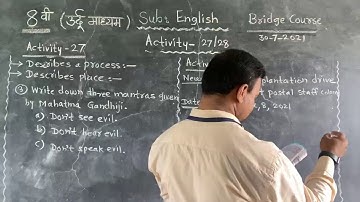 8 वी (उर्दू माध्यम) Sub:- English Bridge Course
30-7-2021
Activity-27
Activity- 27/28
→ Describes a process:-
→ Describes place:-
① Write down three mantras given
by Mahatma Gandhiji.
a). Don't see evil.
b). Don't hear evil.
c). Don't speak evil.
Acti
New plantation drive
t postal staff
Date 8, 2021